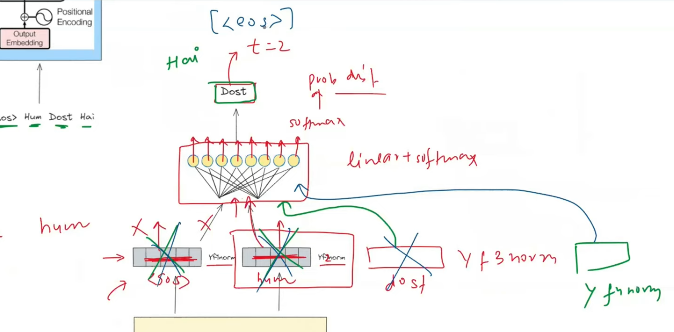 Positional
Encoding
Output
Embedding
os> Hum Dost Hai
[<eos>]
t=2
Hai
Dost
prob dist
softmax
linear + softmax
hum
X
X
<sos>
yf1norm
hum
yf2norm
dost
yf3norm
yf4norm